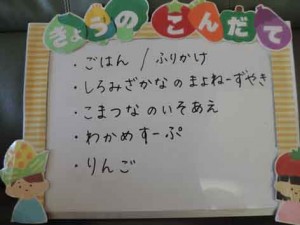 きょうのこんだて
・ごはん / ふりかけ
・しろみざかなのまよねーずやき
・こまつなのいそあえ
・わかめすーぷ
・りんご